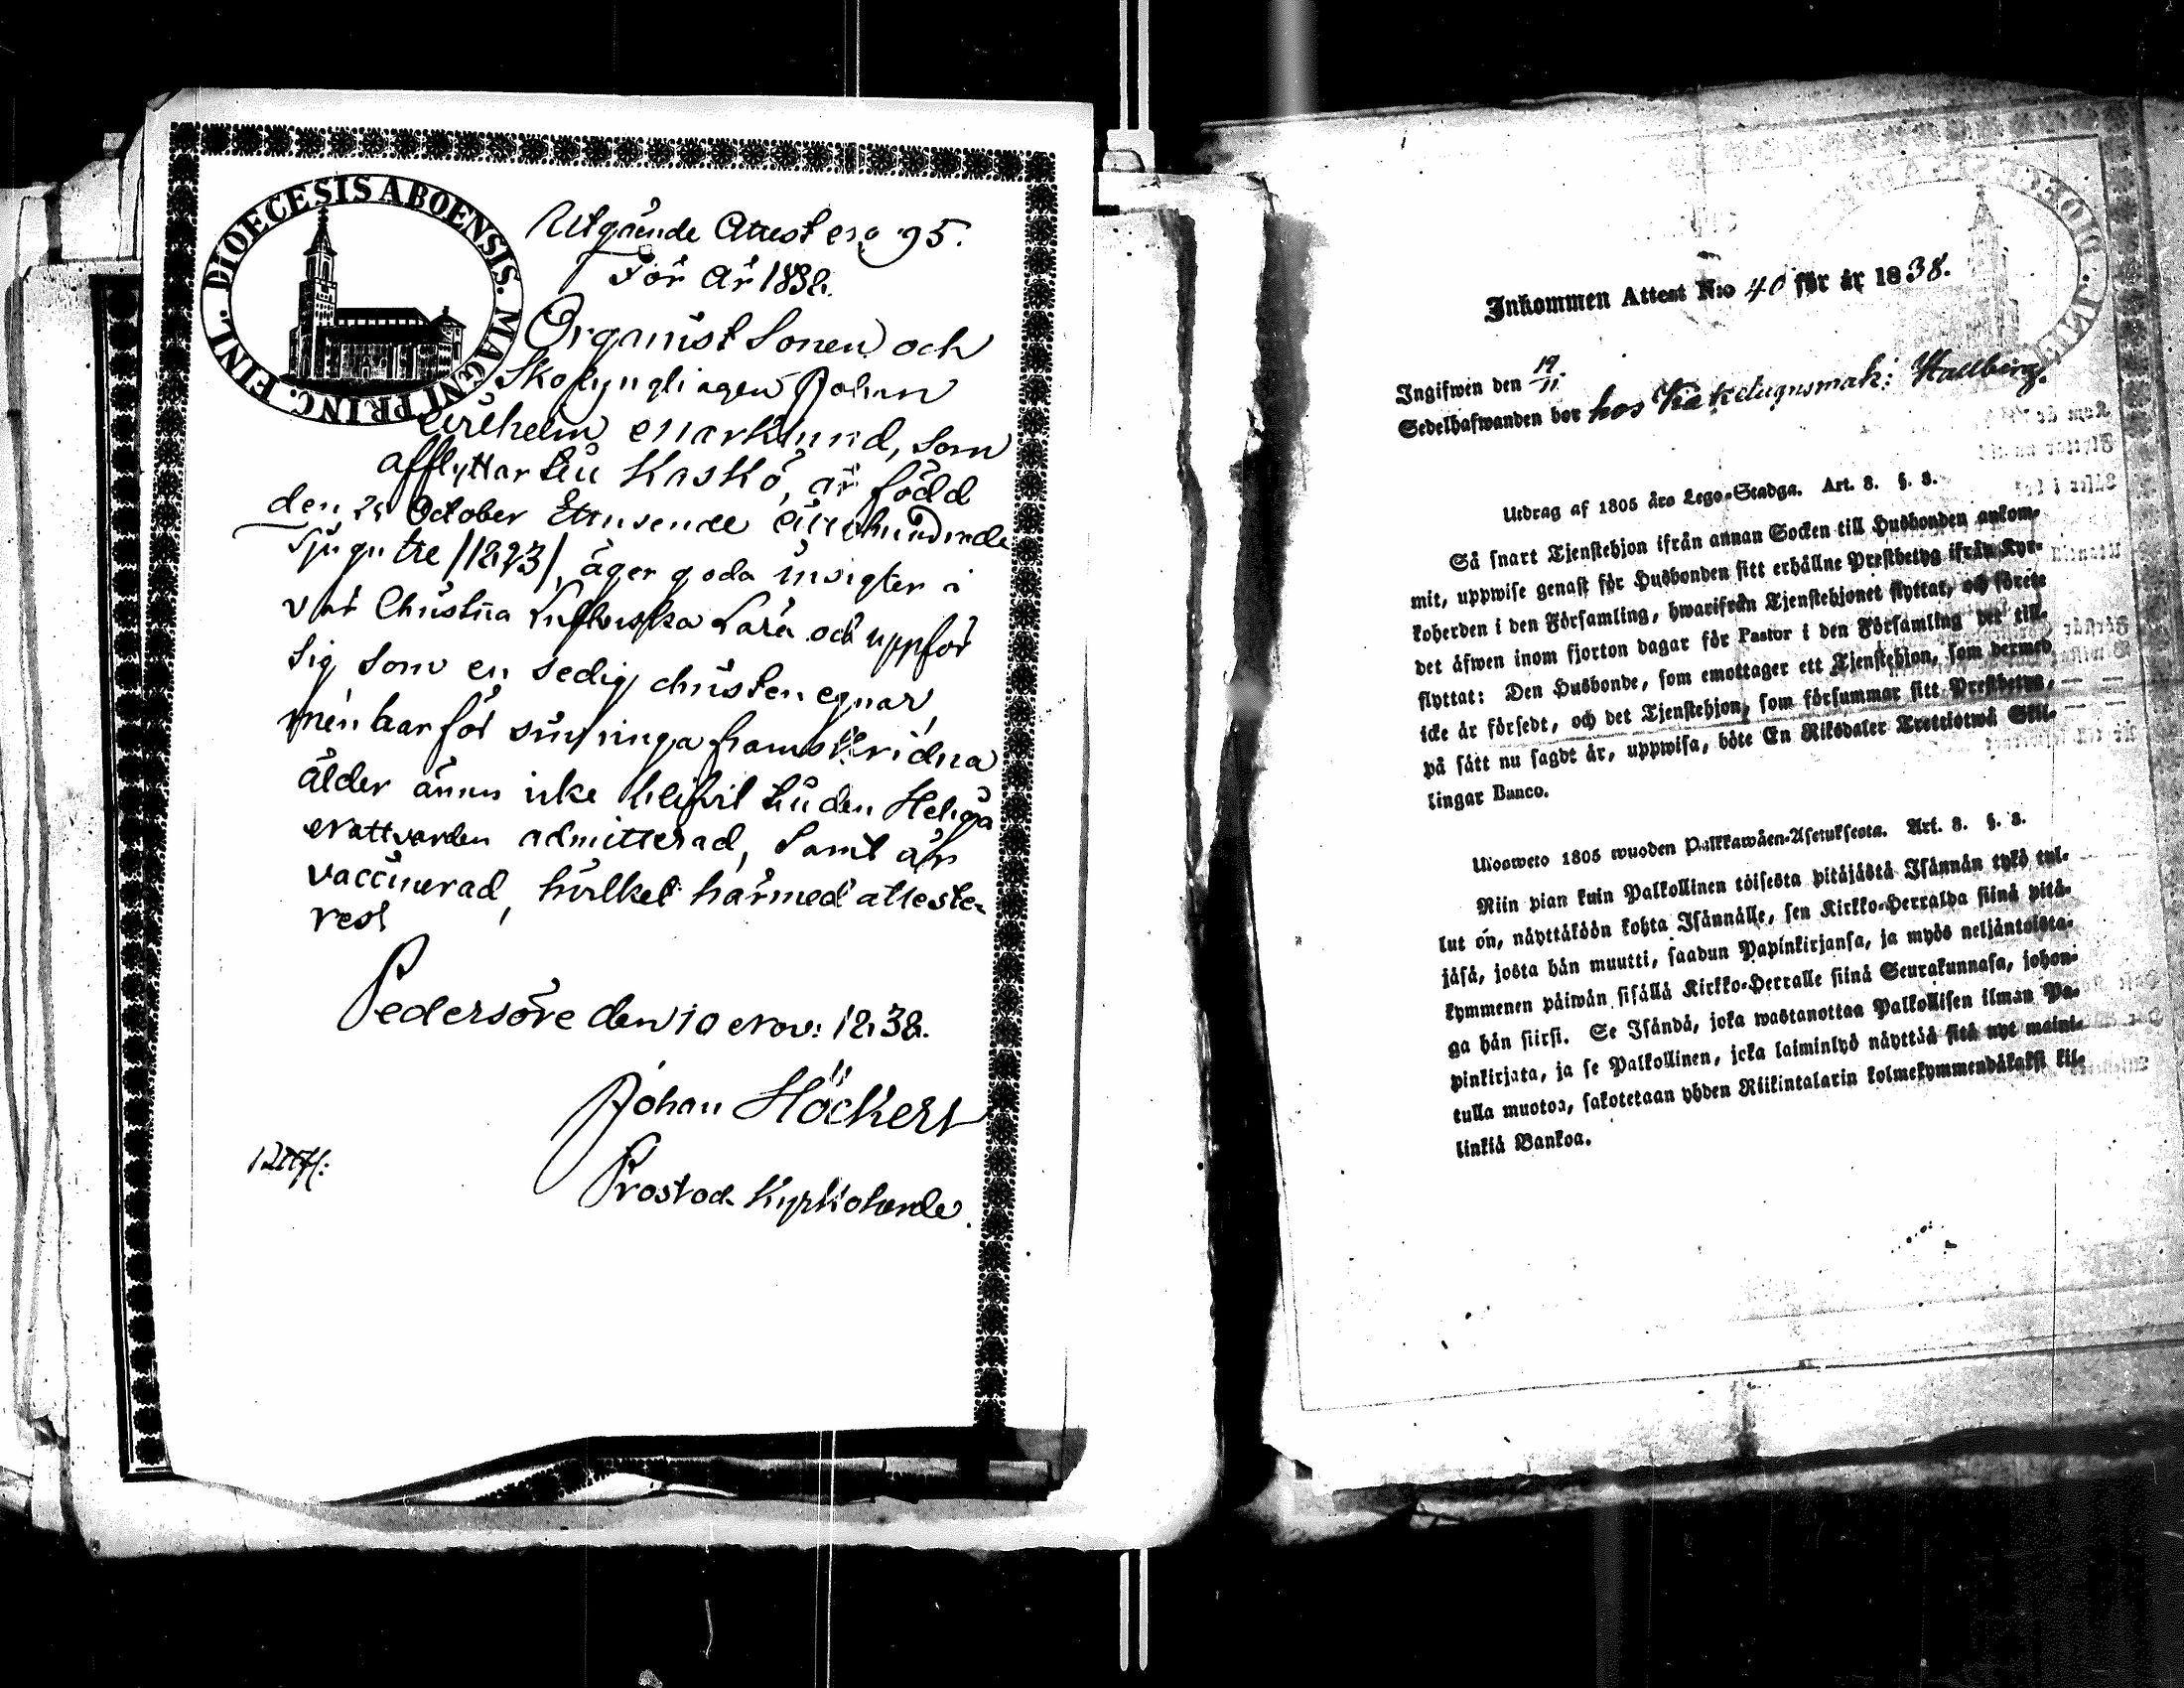 DIOECESIS ABOENSIS. MAGNI PRINC. FINL.
Utgående Attest No 95.
För År 1838.
Organist Sonen och
Skolynglingen Johan
Wilhelm Marklund, som
afflyttar till Kaskö, är född
den 25 October Ettusende Åttahundrade
Tjugutre /1823/, äger goda insigter i
vår Christna Lutherska Lära och uppför
sig som en sedig christen egnar,
men har för sin ringa framskridna
ålder ännu icke blifvit till den Heliga
Nattvarden admitterad, samt är
vaccinerad, hvilket härmed atteste-
rest
Pedersöre den 10 Nov: 1838.
Johan Höckert
Prost och Kyrkoherde.
Inkommen Attest N:o 40 för år 1838.
Ingifwen den 19/11.
Sedelhafwanden bor hos Kakelugnsmak: Hallberg.
Utdrag af 1805 års Lego-Stadga. Art. 8. §. 8.
Så snart Tjenstehjon ifrån annan Socken till Husbonden ankom-
mit, uppwise genast för Husbonden sitt erhållne Prestbetyg ifrån Kyr-
koherden i den Församling, hwarifrån Tjenstehjonet flyttat, och förete
det äfwen inom fjorton dagar för Pastor i den Församling det till-
flyttat: Den Husbonde, som emottager ett Tjenstehjon, som dermed
icke är försedt, och det Tjenstehjon, som försummar sitt Prestbetyg,
på sätt nu sagdt är, uppwisa, böte En Riksdaler Trettiotwå Skil-
lingar Banco.
Uloswero 1805 wuoden Palkkawäen-Asetuksesta. Art. 8. §. 8.
Niin pian kuin Palkollinen toisesta pitäjästä Isännän tykö tul-
lut on, näyttäköön kohta Isännälle, sen Kirkko-Herralda siinä pitä-
jäsä, josta hän muutti, saadun Papinkirjansa, ja myös neljäntoista-
kymmenen päiwän sisällä Kirkko-Herralle siinä Seurakunnasa, johon-
ga hän siirsi. Se Isändä, joka wastanottaa Palkollisen ilman Pa-
pinkirjata, ja se Palkollinen, joka laiminlyö näyttää sitä nyt maini-
tulla muotoa, sakotetaan yhden Riikintalarin kolmekymmendäkaksi kil-
linkiä Bankoa.